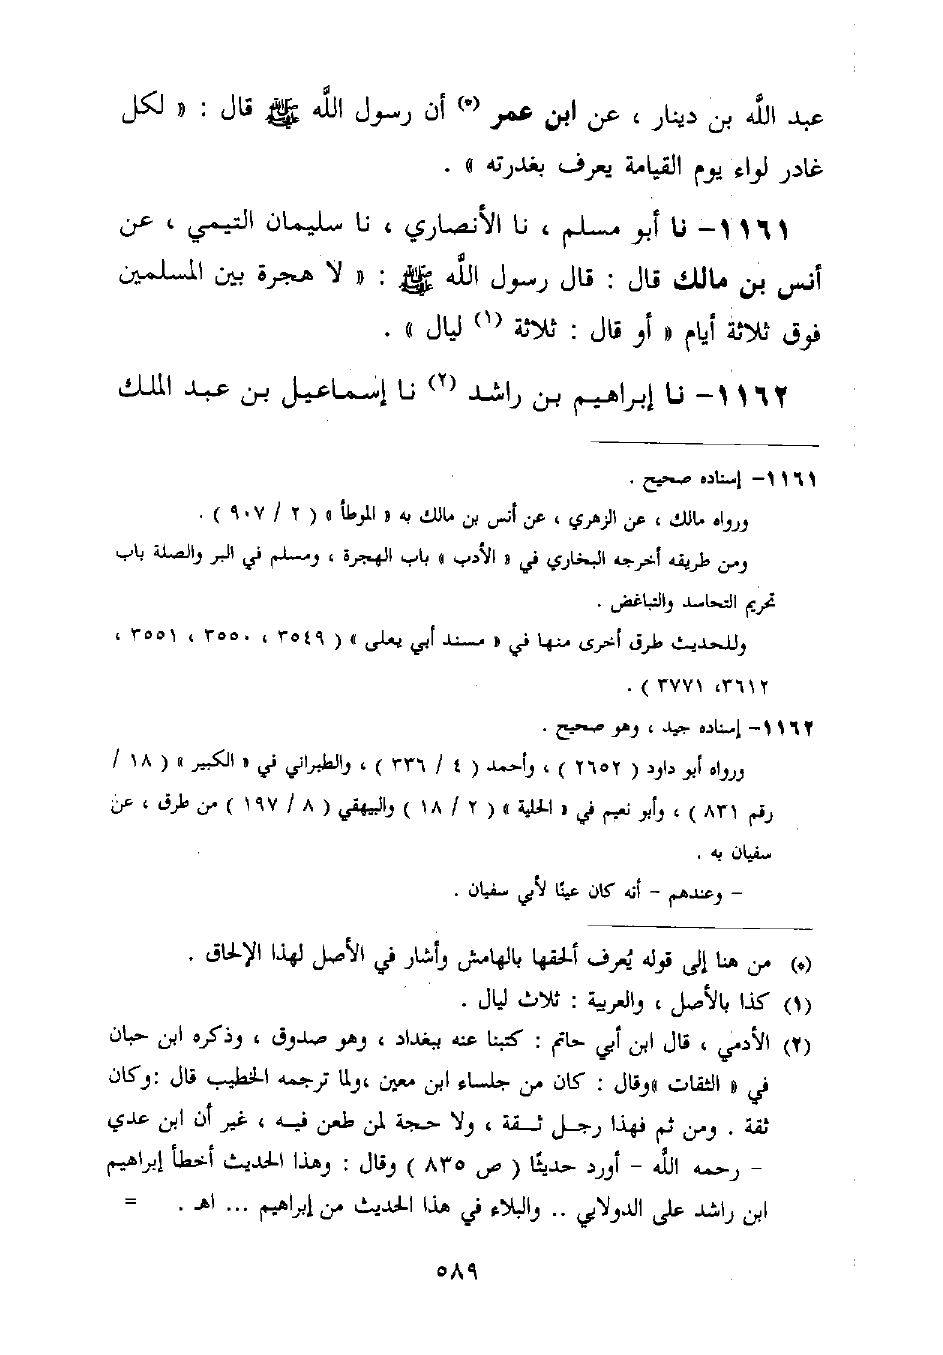 عبد الله بن دينار ، عن ابن عمر (*) أن رسول الله ﷺ قال : « لكل
غادر لواء يوم القيامة يعرف بغدرته » .
١١٦١- نا أبو مسلم ، نا الأنصاري ، نا سليمان التيمي ، عن
أنس بن مالك قال : قال رسول الله ﷺ : « لا هجرة بين المسلمين
فوق ثلاثة أيام « أو قال : ثلاثة (١) ليال » .
١١٦٢- نا إبراهيم بن راشد (٢) نا إسماعيل بن عبد الملك
١١٦١- إسناده صحيح .
ورواه مالك ، عن الزهري ، عن أنس بن مالك به « الموطأ » ( ٢ / ٩٠٧ ) .
ومن طريقه أخرجه البخاري في « الأدب » باب الهجرة ، ومسلم في البر والصلة باب
تحريم التحاسد والتباغض .
وللحديث طرق أخرى منها في « مسند أبي يعلى » ( ٣٥٤٩ ، ٣٥٥٠ ، ٣٥٥١ ،
٣٦١٢، ٣٧٧١ ) .
١١٦٢- إسناده جيد ، وهو صحيح .
ورواه أبو داود ( ٢٦٥٢ ) ، وأحمد ( ٤ / ٣٣٦ ) ، والطبراني في « الكبير » ( ١٨ /
رقم ٨٣١ ) ، وأبو نعيم في « الحلية » ( ٢ / ١٨ ) والبيهقي ( ٨ / ١٩٧ ) من طرق ، عن
سفيان به .
- وعندهم - أنه كان عينًا لأبي سفيان .
(*) من هنا إلى قوله يُعرف ألحقها بالهامش وأشار في الأصل لهذا الإلحاق .
(١) كذا بالأصل ، والعربية : ثلاث ليال .
(٢) الأدمي ، قال ابن أبي حاتم : كتبنا عنه ببغداد ، وهو صدوق ، وذكره ابن حبان
في « الثقات »وقال : كان من جلساء ابن معين ،ولما ترجمه الخطيب قال :وكان
ثقة . ومن ثم فهذا رجل ثقة ، ولا حجة لمن طعن فيه ، غير أن ابن عدي
- رحمه الله - أورد حديثًا ( ص ٨٣٥ ) وقال : وهذا الحديث أخطأ إبراهيم
ابن راشد على الدولابي .. والبلاء في هذا الحديث من إبراهيم ... اهـ . =
٥٨٩